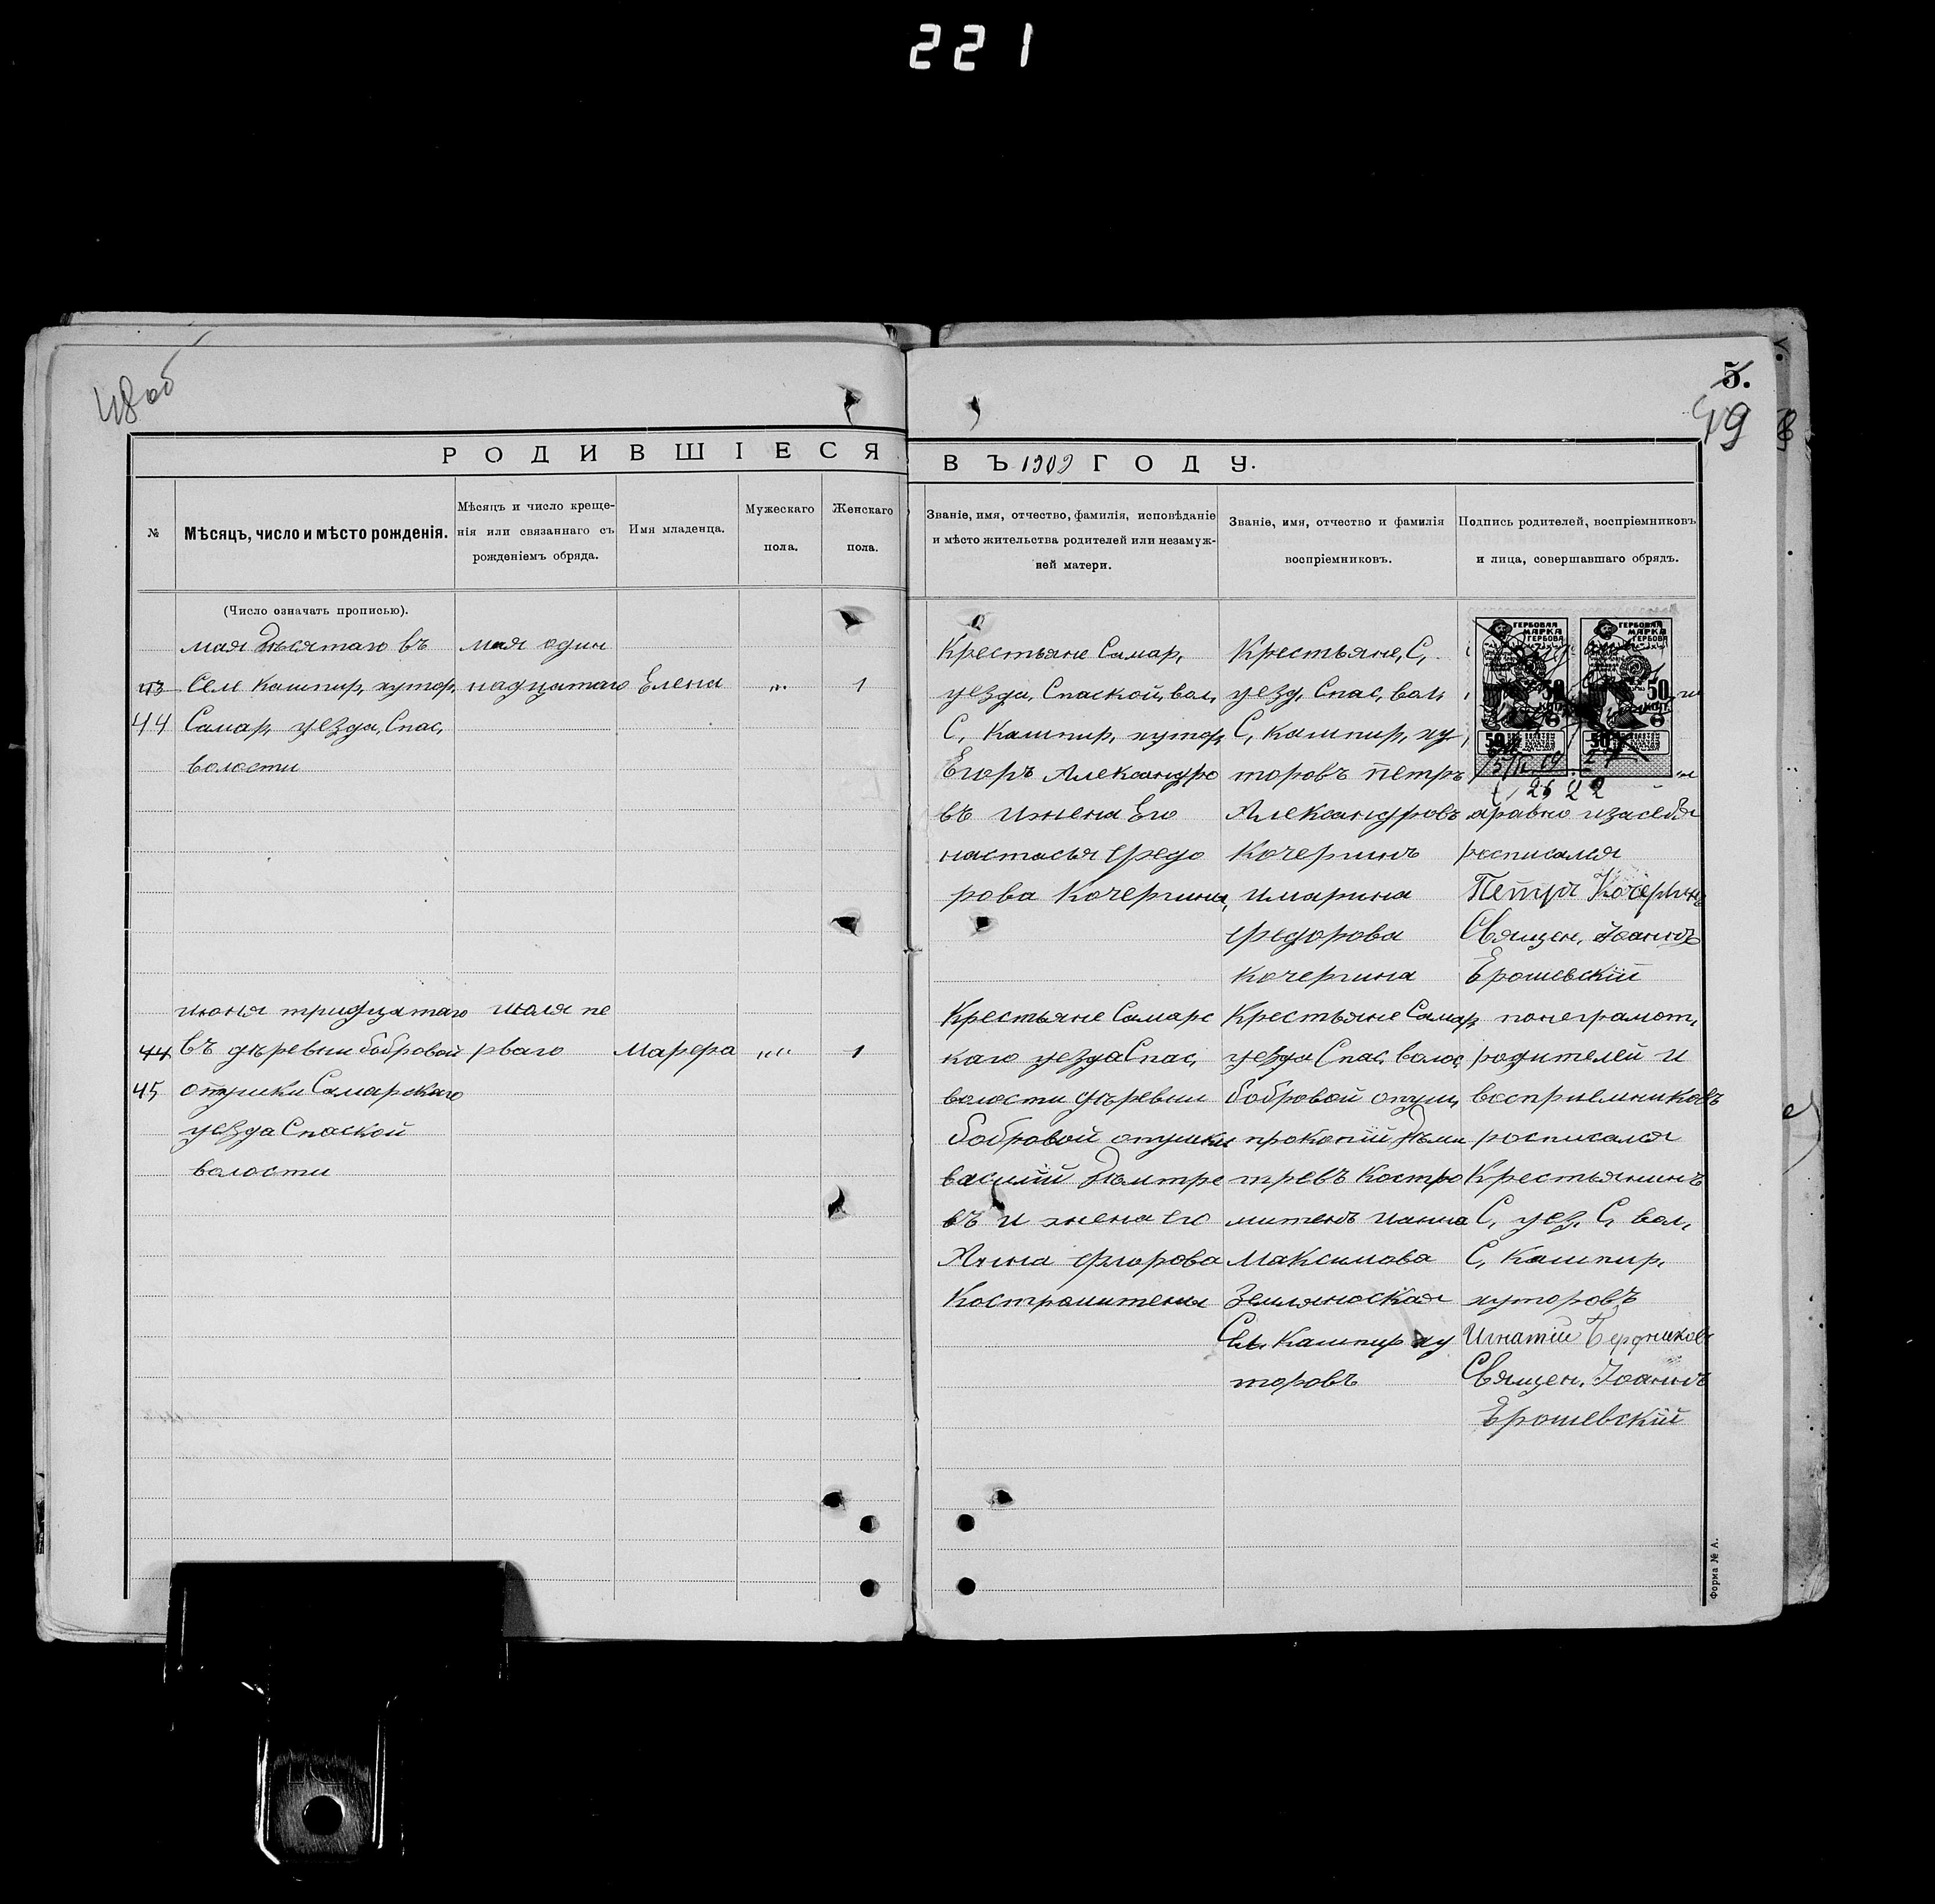 221
48 об
5.
49
РОДИВШІЕСЯ
ВЪ 1909 ГОДУ.
№
Мѣсяцъ, число и мѣсто рожденія.
Мѣсяцъ и число креще-
нія или связаннаго съ
рожденіемъ обряда.
Имя младенца.
Мужескаго
пола.
Женскаго
пола.
Званіе, имя, отчество, фамилія, исповѣданіе
и мѣсто жительства родителей или незамуж-
ней матери.
Званіе, имя, отчество и фамилія
воспріемниковъ.
Подпись родителей, воспріемниковъ
и лица, совершавшаго обрядъ.
(Число означать прописью).
43
44
мая десятаго въ
Сел Кашпир, хутор,
Самар, уезда, Спас,
волости
мая один
надцатаго
Елена
„
1
Крестьяне Самар,
уезда, Спаской, вол,
С, Кашпир, хутор,
Егоръ Александро
въ ижена Его
настасья федо
рова Кочергины,
Крестьяне, С,
уезд, Спас, вол,
С, Кашпир, ху
торовъ петръ
Александровъ
Кочергинъ
имарина
федорова
Кочергина
ГЕРБОВАЯ
МАРКА
50
КОП
ГЕРБОВАЯ
МАРКА
50
КОП
аравно изасебя
росписался
Петръ Кочергинъ
Священ, Іоаннъ
Ерошевскій
44
45
июня тридцатаго
въ деревни бобровой
опушки Самарскаго
уезда Спаской
волости
июля пе
рваго
Марфа
„„
1
Крестьяне Самарс
каго уезда Спас,
волости деревни
бобровой опушки
василий Дмитре
въ и жена его
Анна фророва
Костромитены
Крестьяне Самар,
уезда Спас, волос,
бобровой опуш,
прокопий Дми
тревъ Костро
митенъ ианна
Максимова
Земляноская
Сел Кашпир ху
торовъ
понеграмот,
родителей и
восприемниковъ
росписался
Крестьянинъ
С, уез, С, вол,
С, Кашпир,
хуторовъ
Игнатій Бердниковъ
Священ, Іоаннъ
Ерошевскій
Форма № А.